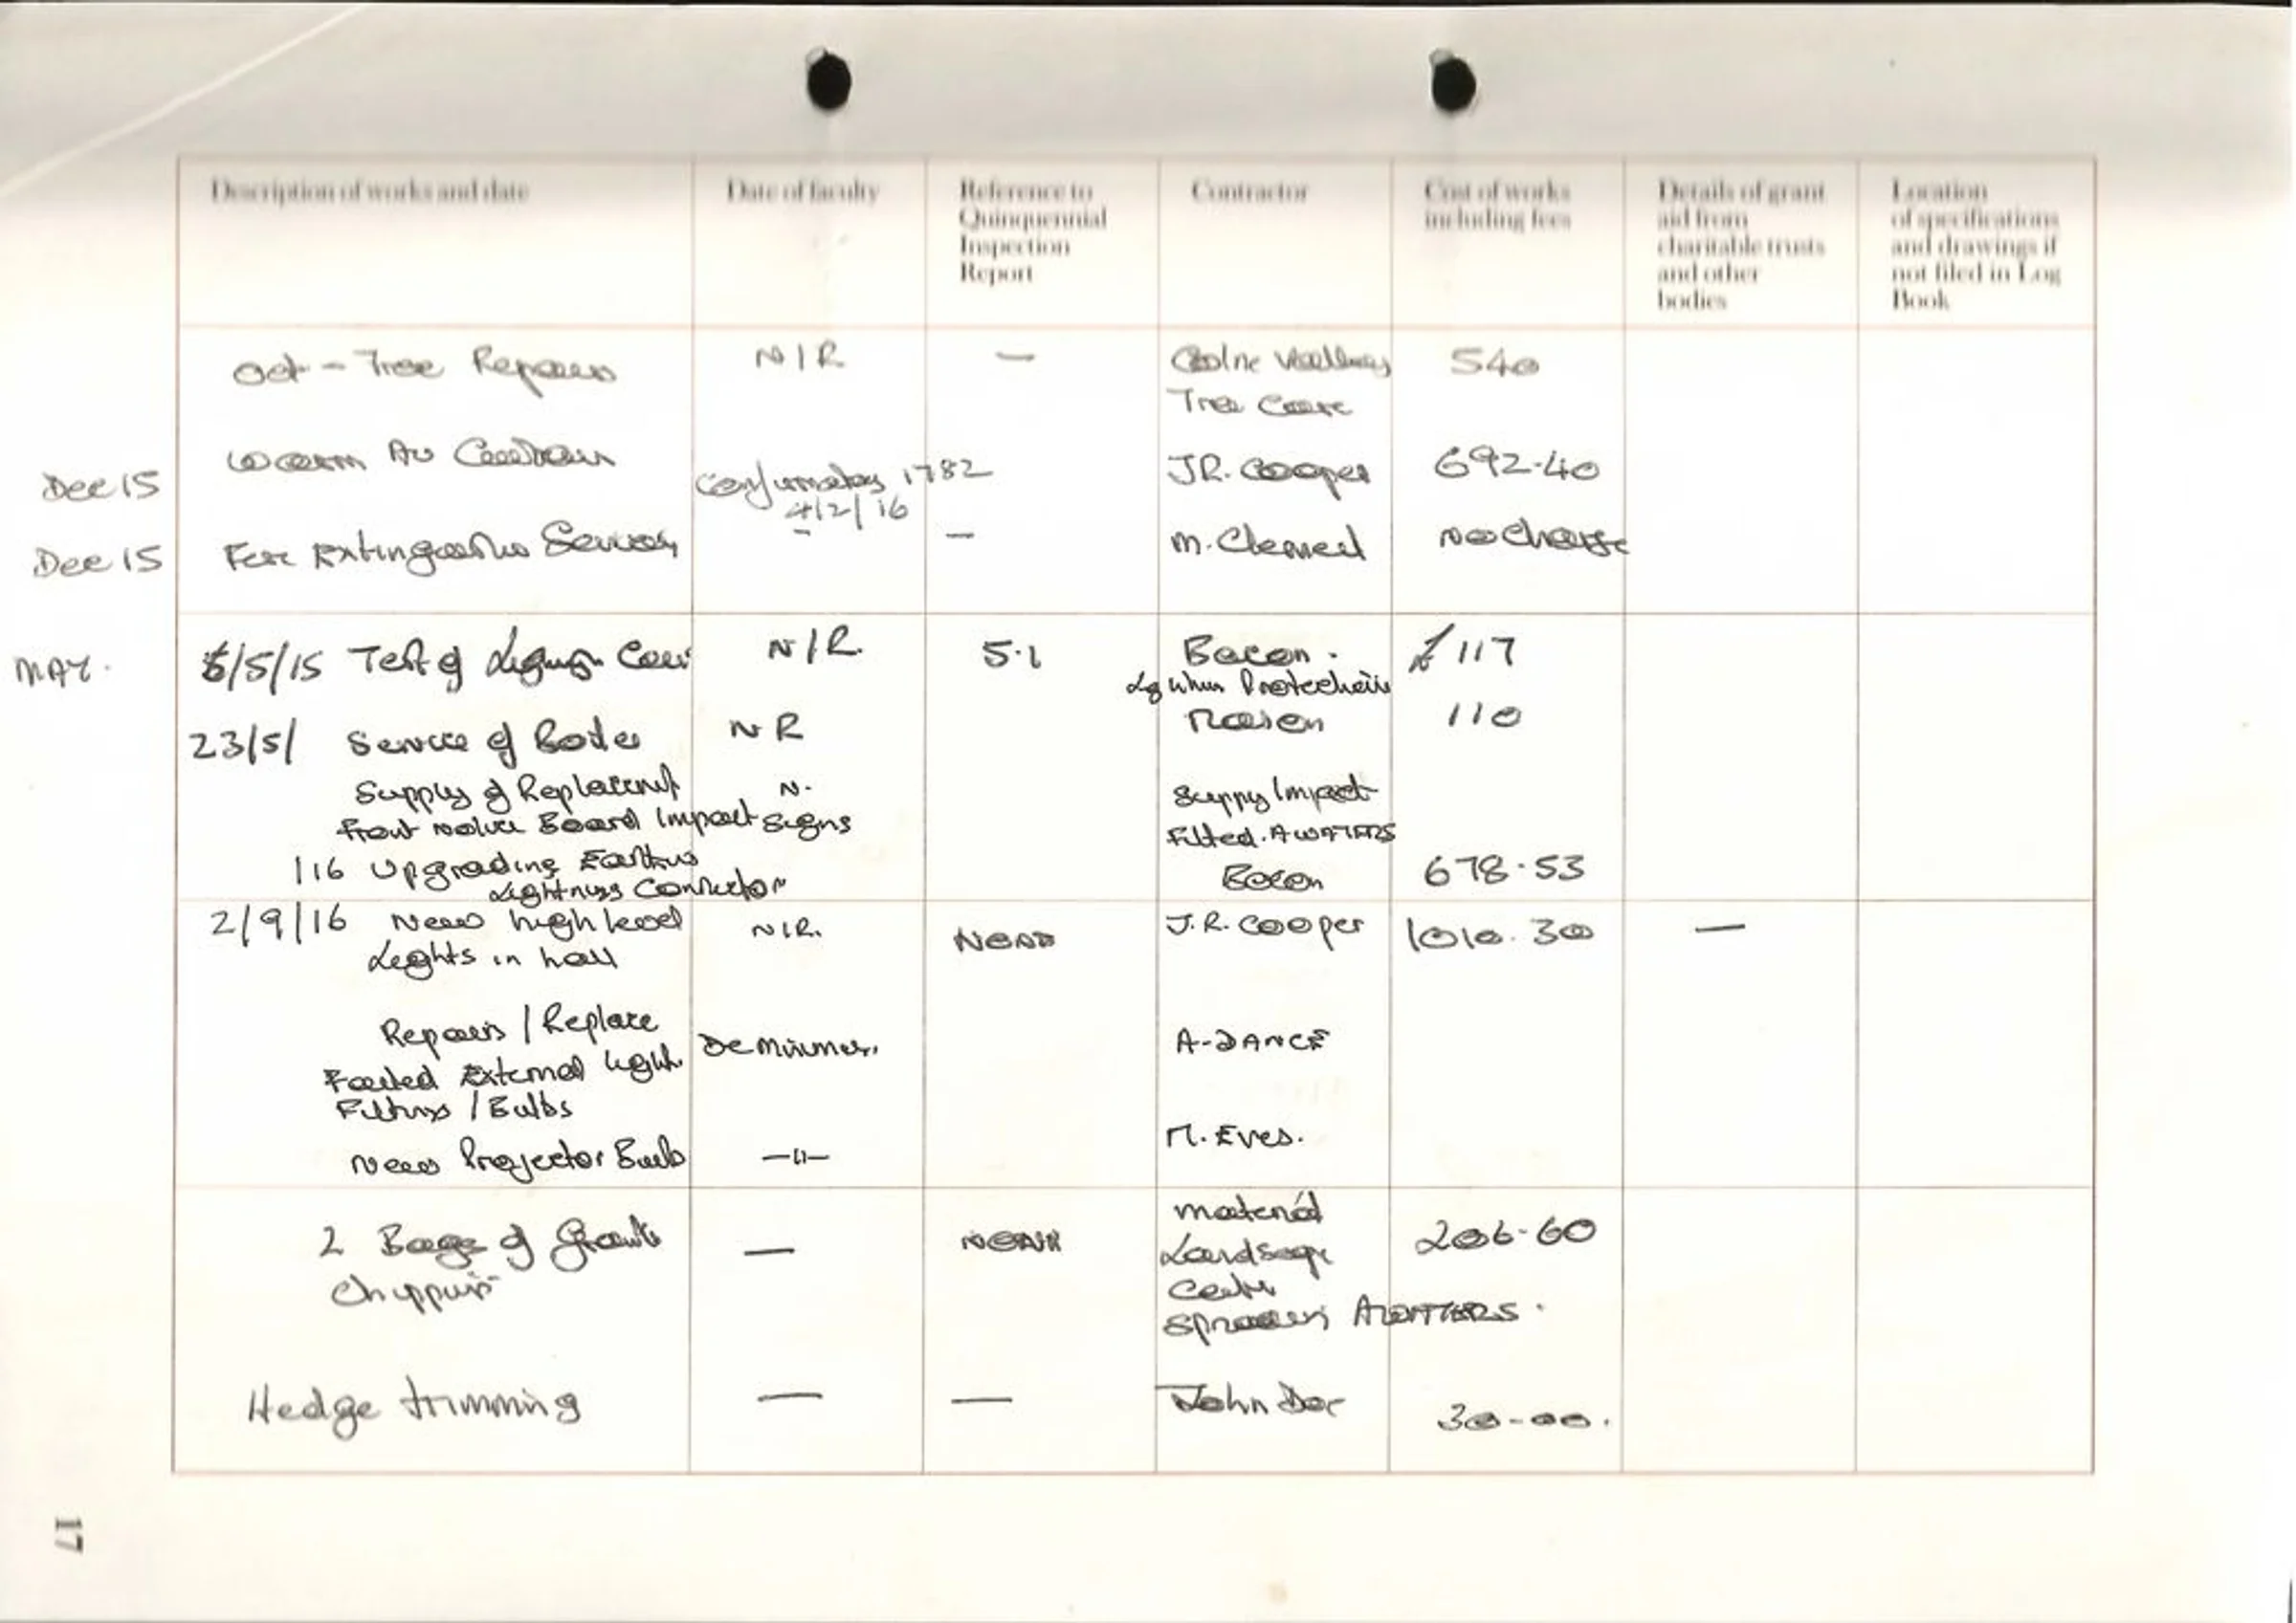 Description of works and date
Date of faculty
Reference to
Quinquennial
Inspection
Report
Contractor
Cost of works
including fees
Details of grant
aid from
charitable trusts
and other
bodies
Location
of specifications
and drawings if
not filed in Log
Book
Oct - Tree Repairs N/R — Colne Valley 540
Tree Care
Dec 15 Warm Air Confirmatory 1782 J.R. Cooper 692-40
4/2/16
Dec 15 Fire Extinguisher Service - — M. Clement No Charge
MAY. 6/5/15 Test of N/R. 5.1 Bacon. £117
Protection
23/5/ Service of Boiler NR 110
Supply of Replacement N. Supply Impact
front Notice Board Impact Signs Fitted. A WATERS
116 Upgrading Bacon 678.53
Lightning Conductor
2/9/16 New high level N/R. J.R. Cooper 1010.30 —
Lights in hall
Repairs / Replace
De Minimus. A-DANCE
External light
/ Bulbs
New Projector Bulb —"— M. Eves.
2 Bags of — Material 206-60
Chippings Landscape
Centre
A WATERS.
Hedge trimming — — John Doe 30-00.
17